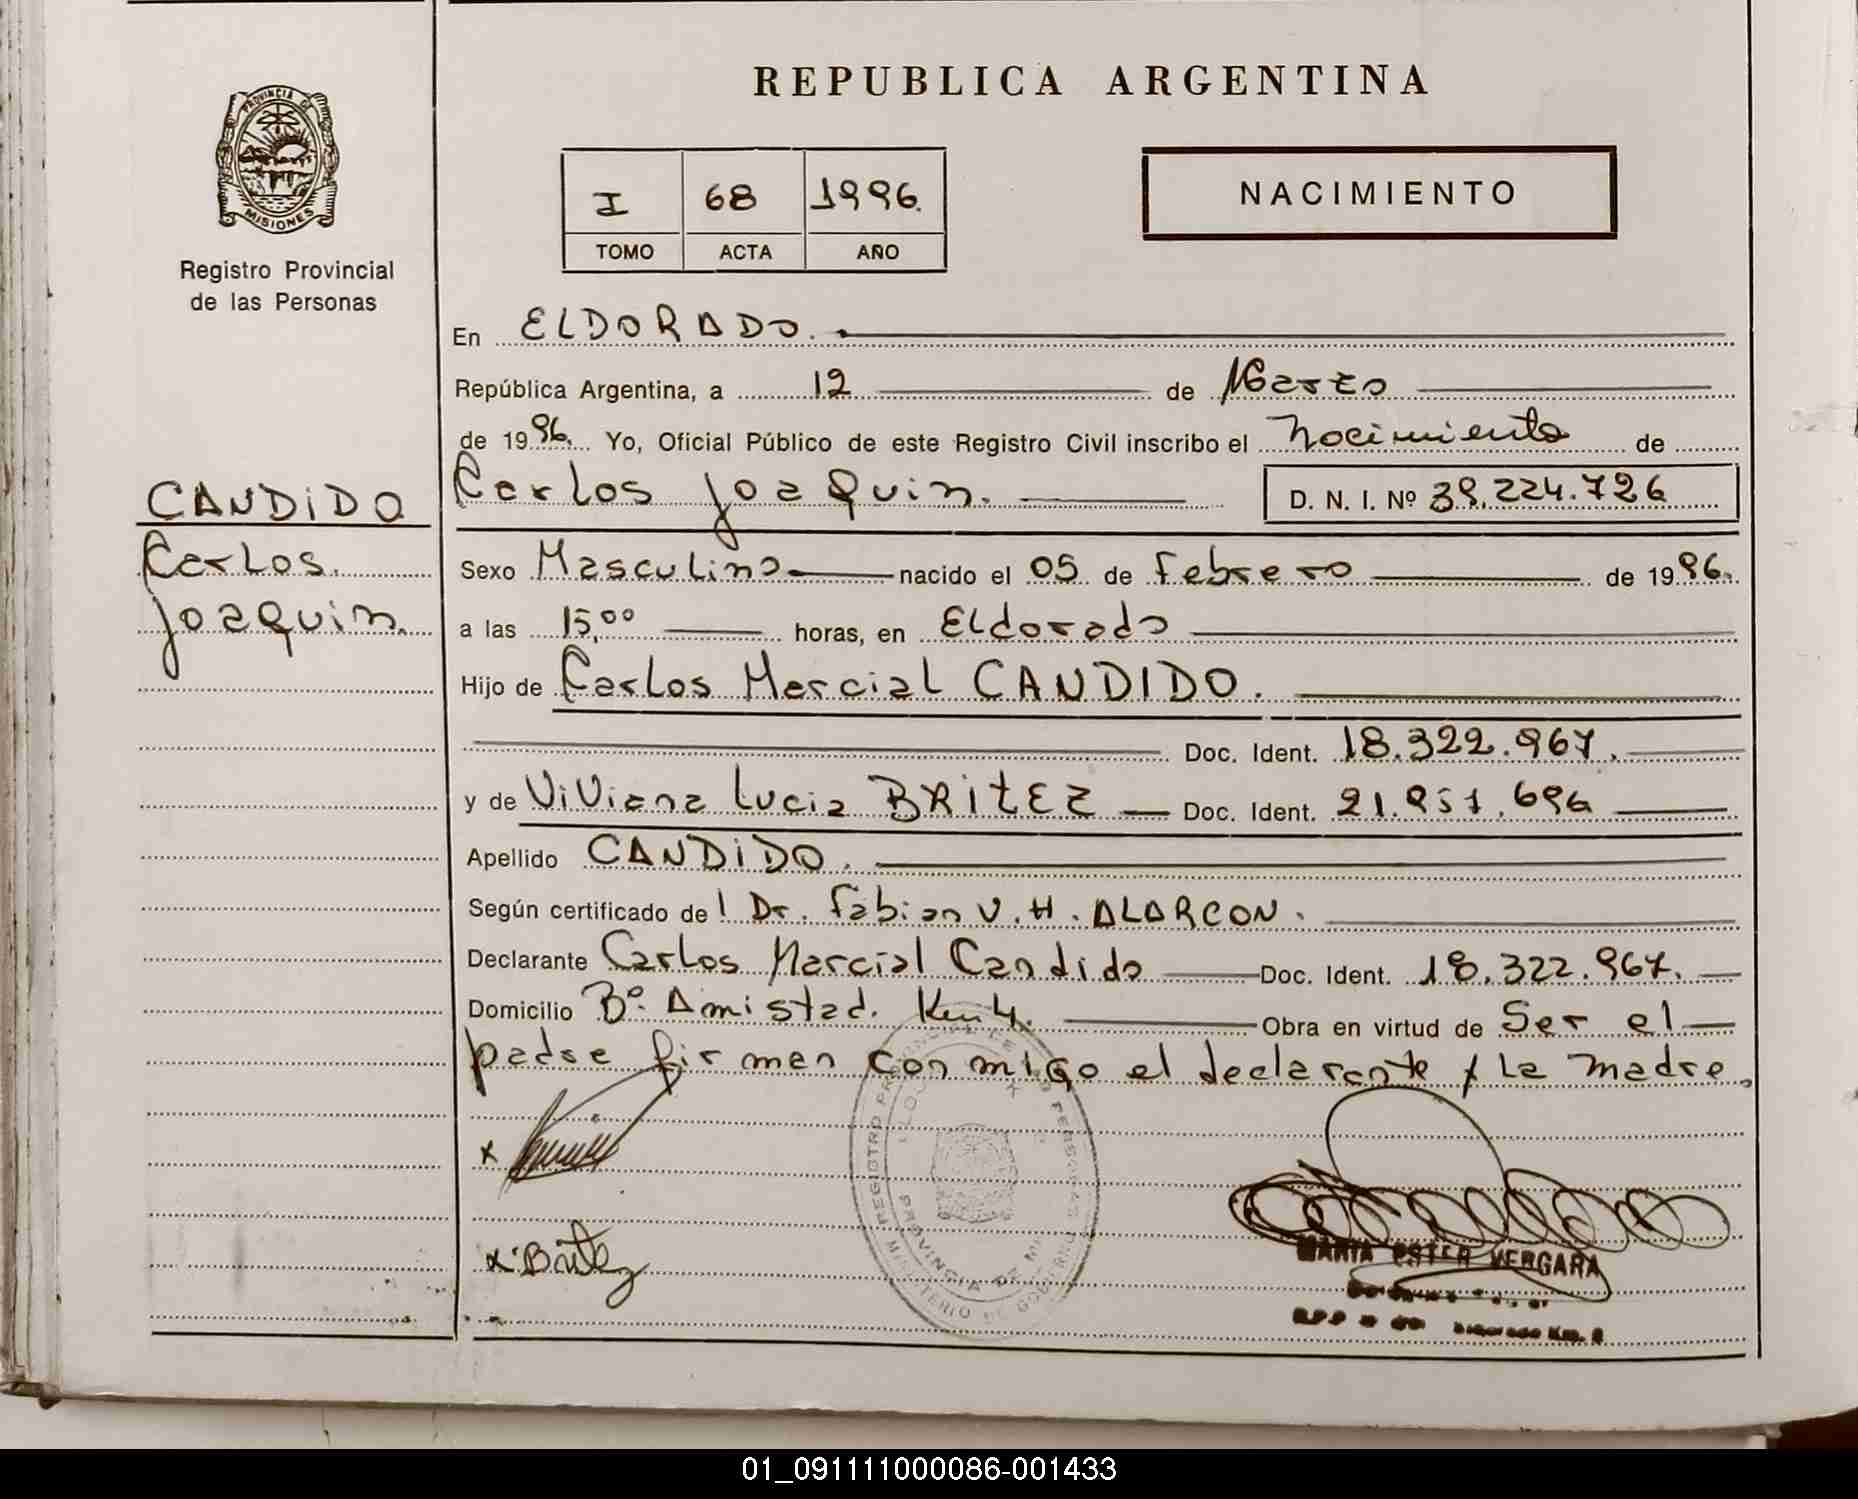 REPUBLICA ARGENTINA
PROVINCIA DE
MISIONES
Registro Provincial
de las Personas
I 68 1996.
TOMO ACTA AÑO
NACIMIENTO
En ELDORADO.
República Argentina, a 12 de Marzo
de 1996. Yo, Oficial Público de este Registro Civil inscribo el Nacimiento de
Carlos Joaquin. D. N. I. Nº 39.224.726
CANDIDO
Carlos
Joaquin.
Sexo Masculino nacido el 05 de Febrero de 1996.
a las 15,00 horas, en Eldorado
Hijo de Carlos Marcial CANDIDO.
Doc. Ident. 18.322.967.
y de Viviana Lucia BRITEZ Doc. Ident. 21.951.696
Apellido CANDIDO.
Según certificado de l Dr. Fabian V. H. ALARCON.
Declarante Carlos Marcial Candido Doc. Ident. 18.322.967.
Domicilio Bº. Amistad. Km 4. Obra en virtud de Ser el
padre firman conmigo el declarante y la madre.
x
x Britez
REGISTRO DE PERSONAS
PROVINCIA DE
MINISTERIO DE GOBIERNO
MARIA ESTER VERGARA
01_091111000086-001433